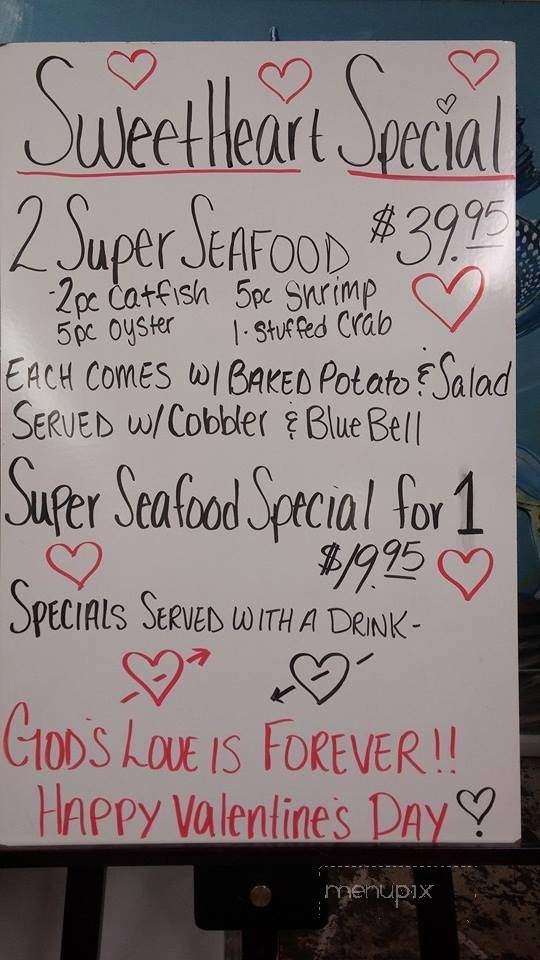 SweetHeart Special
2 Super SEAFOOD $39.95
-2pc Catfish 5pc Shrimp
5pc oyster 1-Stuffed Crab
EACH COMES W/ BAKED Potato & Salad
SERVED w/ Cobbler & Blue Bell
Super Seafood Special for 1
$19.95
SPECIALS SERVED WITH A DRINK-
GOD'S LOVE IS FOREVER!!
HAPPY Valentine's DAY
menupix